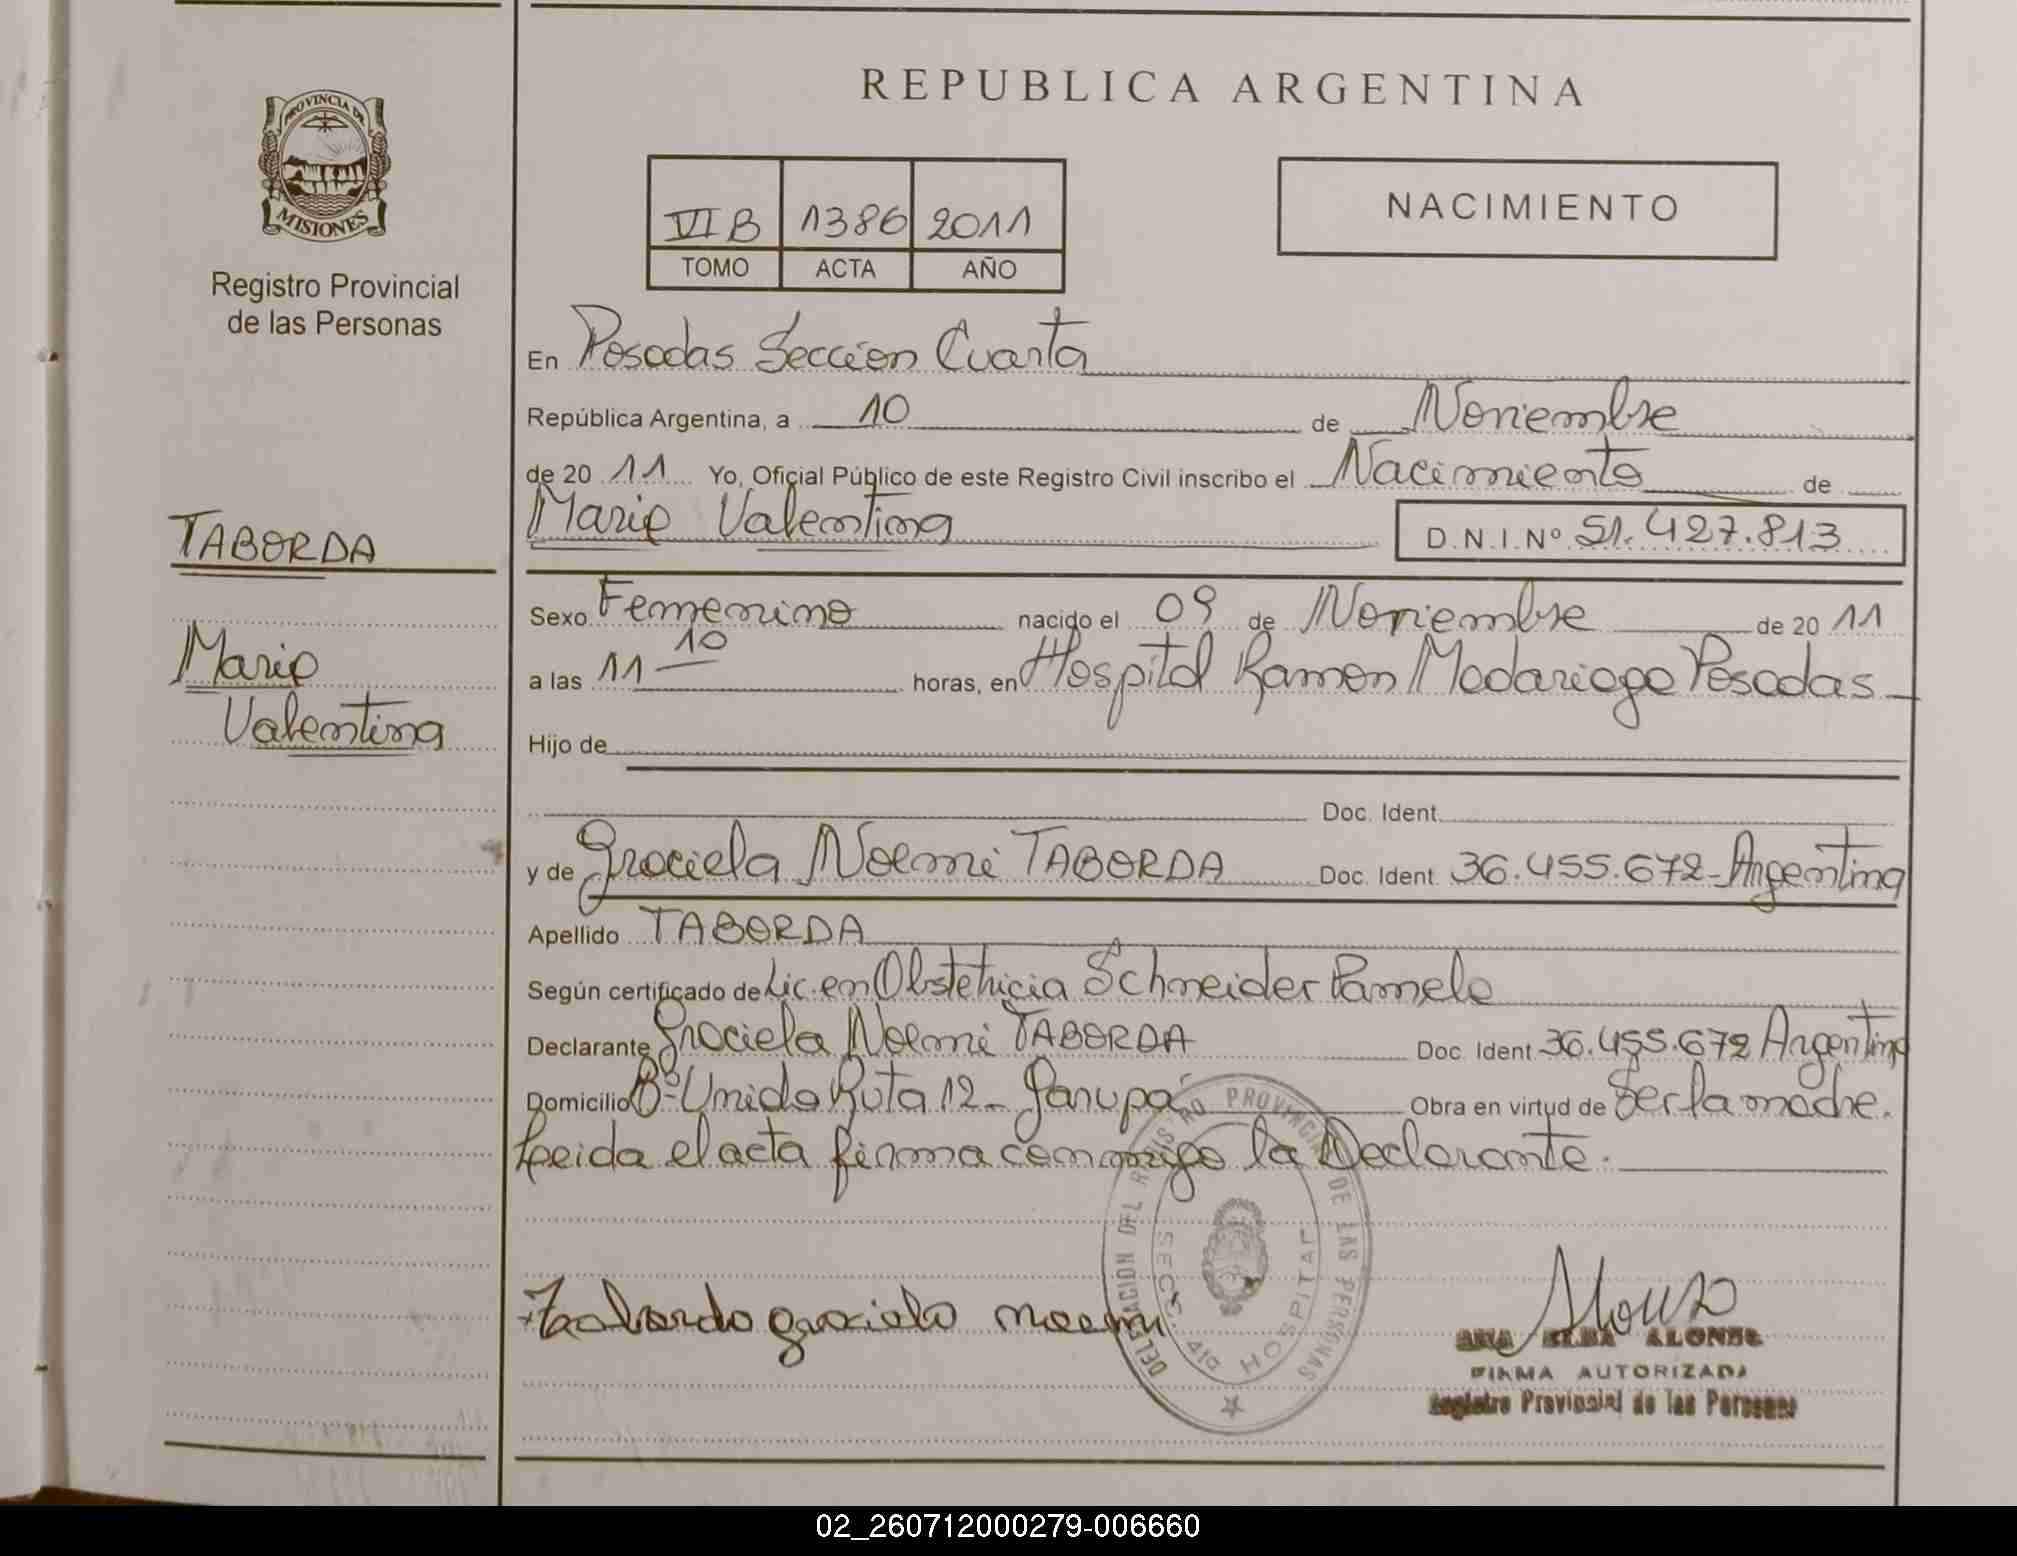 REPUBLICA ARGENTINA
PROVINCIA DE
MISIONES
Registro Provincial
de las Personas
VI B 1386 2011
TOMO ACTA AÑO
NACIMIENTO
En Posadas Seccion Cuarta
República Argentina, a 10 de Noviembre
de 20 11 Yo, Oficial Público de este Registro Civil inscribo el Nacimiento de
Maria Valentina D.N.I.Nº 51.427.813
TABORDA
Maria
Valentina
Sexo Femenino nacido el 09 de Noviembre de 20 11
a las 11 10 horas, en Hospital Ramon Madariaga Posadas
Hijo de
Doc. Ident.
y de Graciela Noemi TABORDA Doc. Ident. 36.455.672 - Argentina
Apellido TABORDA
Según certificado de Lic. en Obstetricia Schneider Pamela
Declarante Graciela Noemi TABORDA Doc. Ident 36.455.672 Argentina
Domicilio Bº Unido Ruta 12 - Garupá Obra en virtud de Ser la madre.
Leida el acta firma conmigo la Declarante.
DELEGACION DEL REGISTRO PROVINCIAL DE LAS PERSONAS
SECC. 4ta HOSPITAL
Taborda graciela noemi
Alonso
ANA ELBA ALONSO
FIRMA AUTORIZADA
Registro Provincial de las Personas
02_260712000279-006660